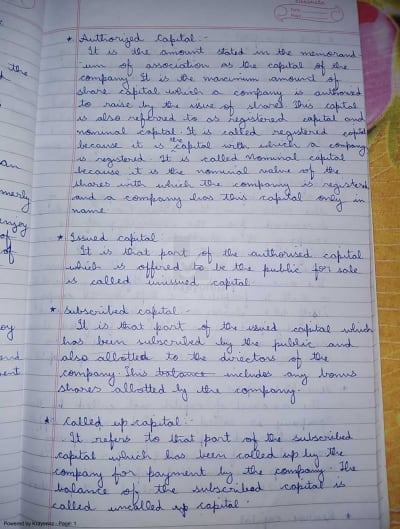 the
an
merly
enjoy
of
of
oy
and
ent
* Authorized Capital :-
It is the amount stated in the memorand
-um of association as the capital of the
company. It is the maximum amount of
share capital which a company is authorised
to raise by the issue of shares. This capital
is also referred to as registered capital and
nominal capital. It is called registered capital
because it is the capital with which a company
is registered. It is called nominal capital
because it is the nominal value of the
shares with which the company is registered
and a company has this capital only in
name.
* Issued capital
It is that part of the authorised capital
which is offered to be the public for sale
is called unissued capital.
* Subscribed capital -
It is that part of the issued capital which
has been subscribed by the public and
also allotted to the directors of the
company. This balance includes any bonus
shares allotted by the company.
* Called up capital :-
It refers to that part of the subscribed
capital which has been called up by the
company for payment by the company. The
balance of the subscribed capital is
called uncalled up capital.
Powered by Knowee - Page: 1